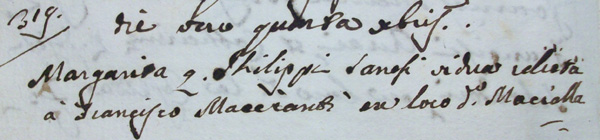 319. die vero quinta xbris.
Margarita q. Philippi Sanesi vidua relicta
à Francisco Maceransi ex loco d.º Maciolla